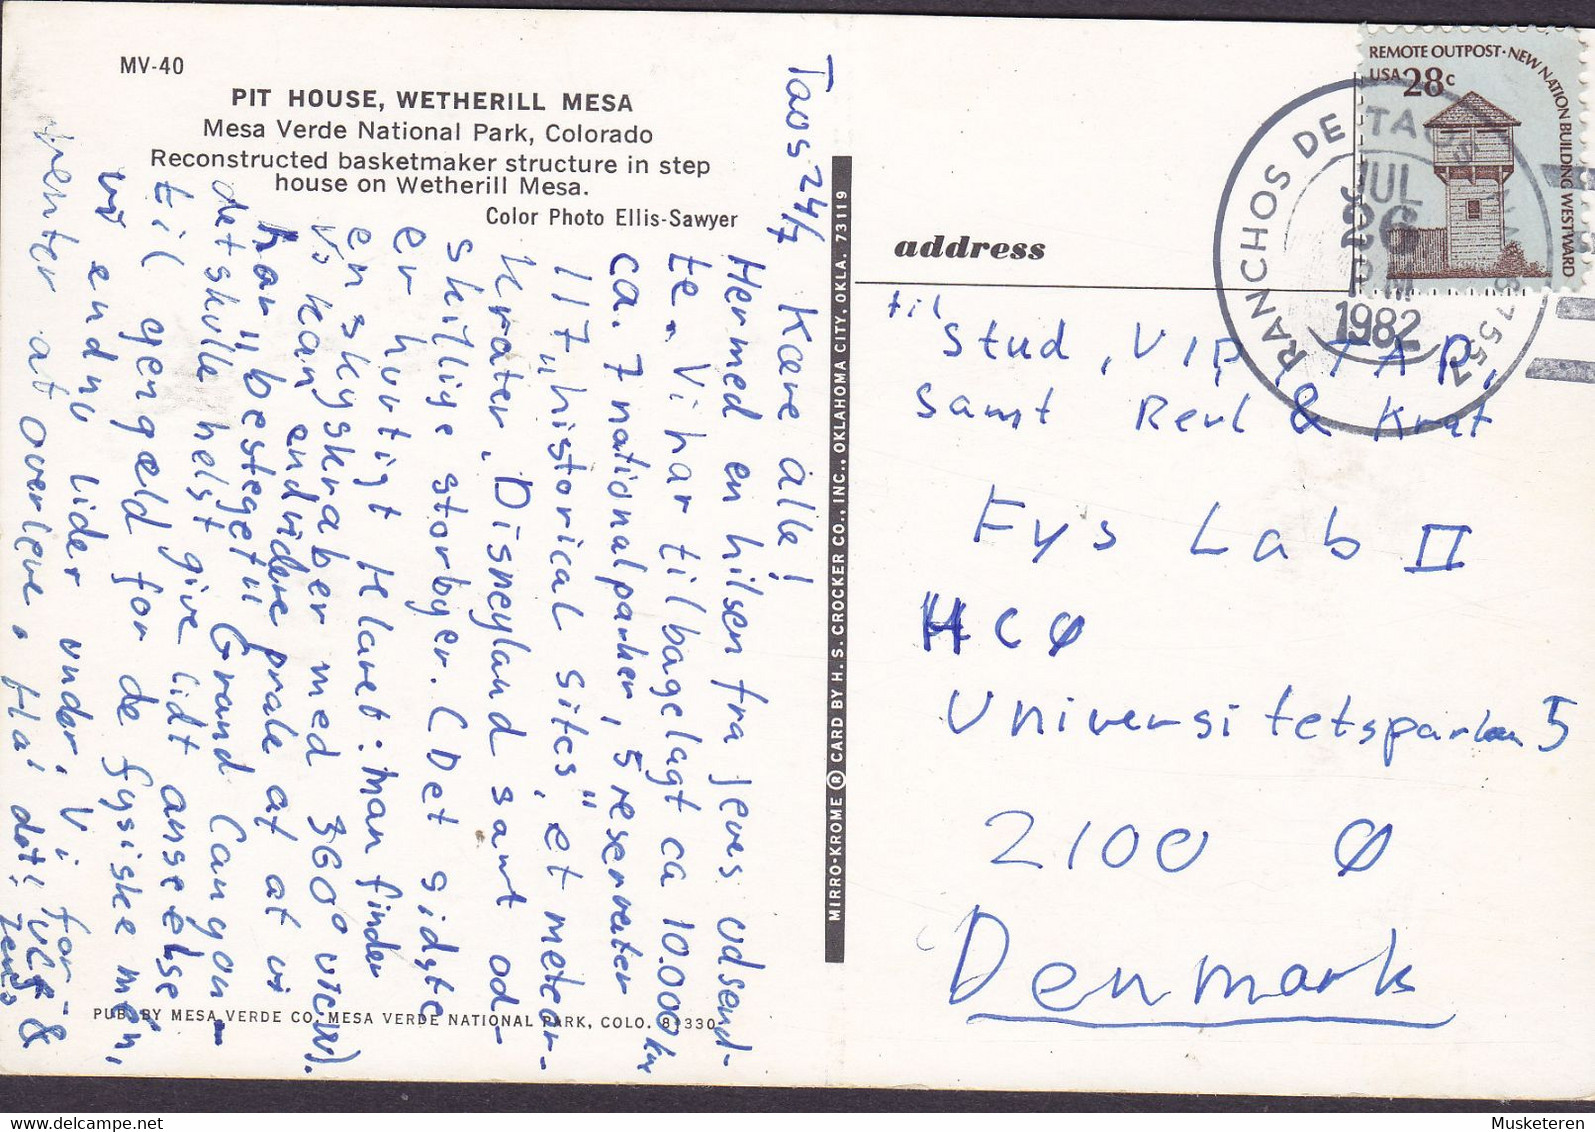 MV-40
PIT HOUSE, WETHERILL MESA
Mesa Verde National Park, Colorado
Reconstructed basketmaker structure in step
house on Wetherill Mesa.
Color Photo Ellis-Sawyer
Taos 24/7 Kære alle!
Hermed en hilsen fra jeres udsend-
te. Vi har tilbagelagt ca 10.000 km
ca. 7 nationalparker, 5 reservater
117 "historical sites", et meteor-
krater, Disneyland samt ad-
skillige storbyer. (Det sidste
er hurtigt klaret: man finder
en skyskraber med 360° view).
Vi kan endvidere prale af at vi
har "besteget" Grand Canyon –
det skulle helst give lidt anseelse
til gengæld for de fysiske men,
vi endnu lider under. Vi for-
venter at overleve. Ha' det!
Jens
PUB. BY MESA VERDE CO. MESA VERDE NATIONAL PARK, COLO. 81330
MIRRO-KROME ® CARD BY H. S. CROCKER CO., INC., OKLAHOMA CITY, OKLA. 73119
REMOTE OUTPOST · NEW NATION BUILDING WESTWARD
USA 28c
RANCHOS DE TAOS 87557
JUL
26
PM
1982
address
til
Stud, VIP, TAP,
samt Revl & Krat
Fys Lab II
HCØ
Universitetsparken 5
2100 Ø
Denmark
Musketeren